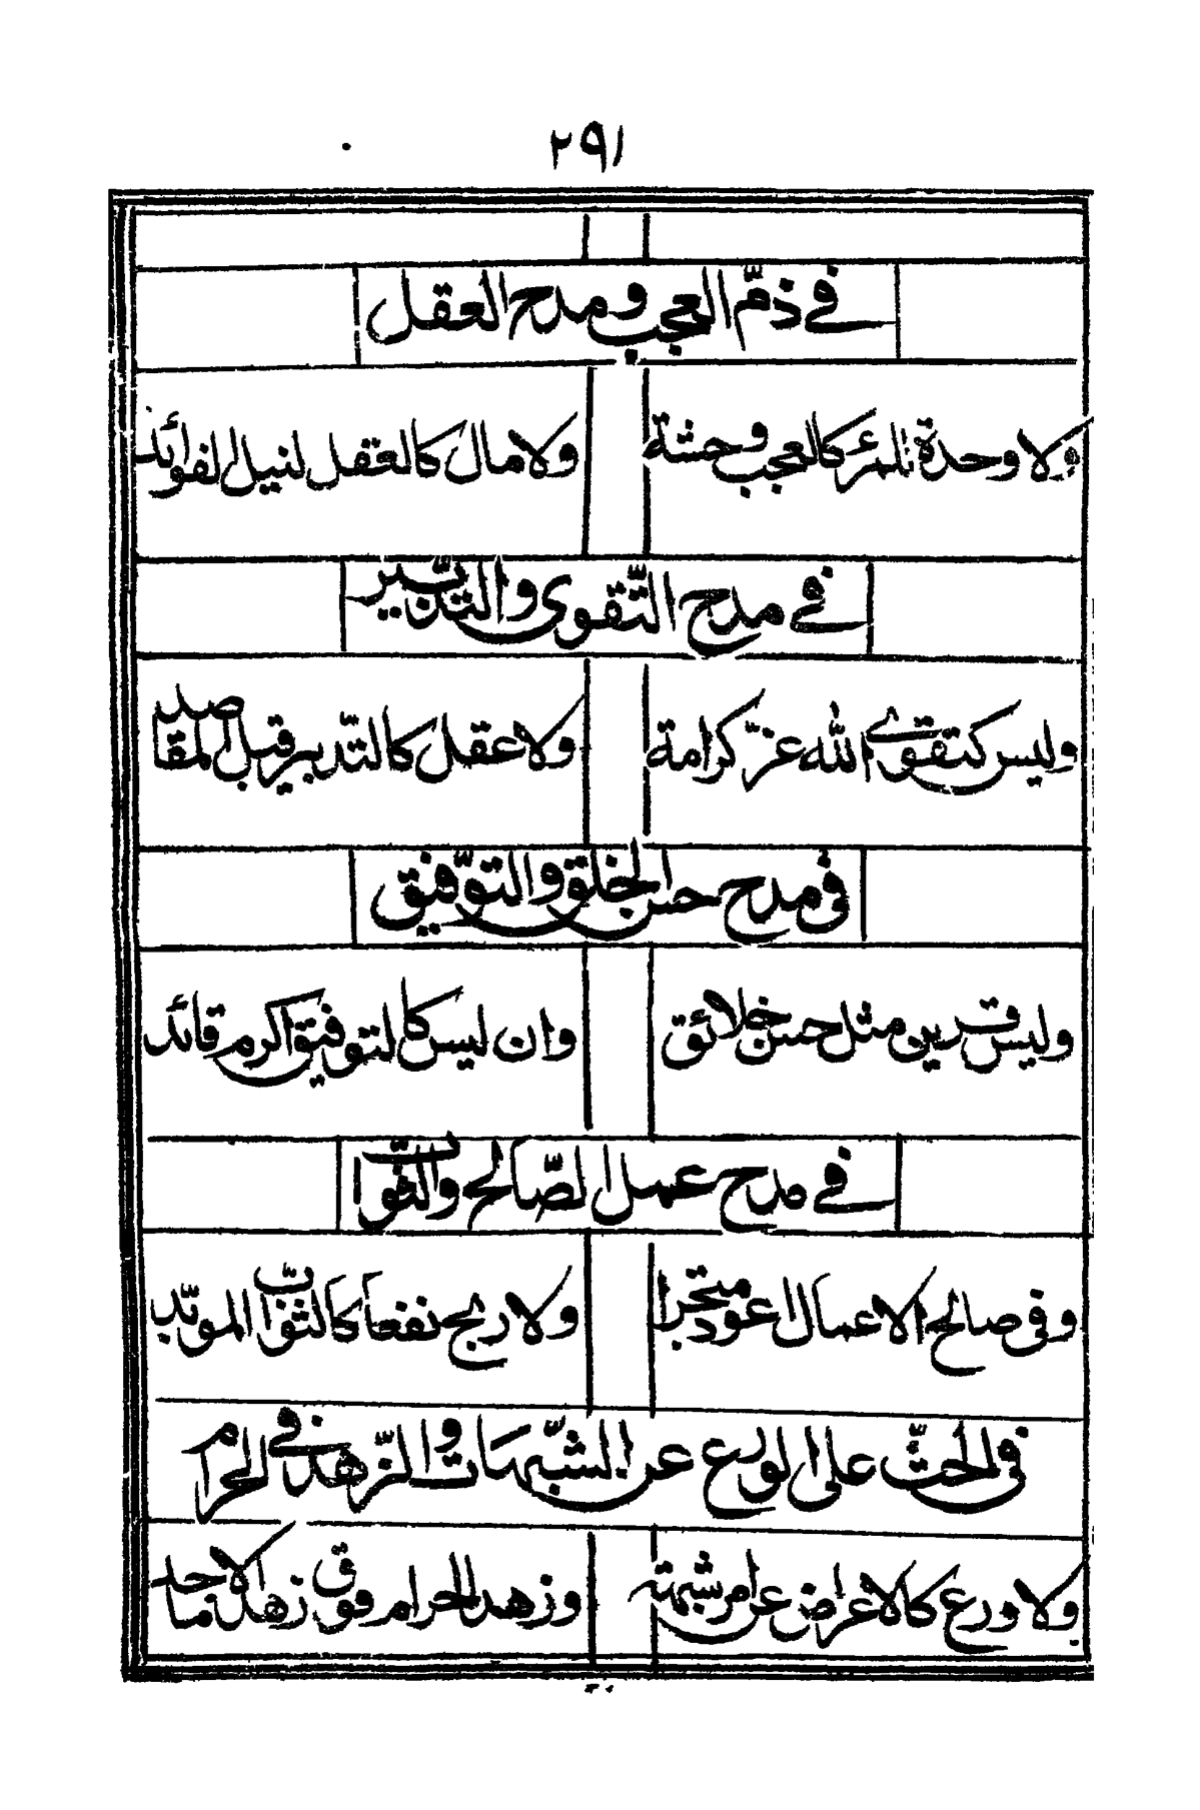 ٢٩١
في ذمّ العجب و مدح العقل
ولا وحدة للمرء كالعجب وحشة ولا مال كالعقل لنيل الفوائد
في مدح التّقوى والتّدبير
وليس كتقوى الله عزّ كرامة ولا عقل كالتّدبير قبل المقاصد
في مدح حسن الخلق والتوّفيق
وليس قرين مثل حسن خلائق وان ليس كالتوفيق اكرم قائد
في مدح عمل الصّالح والثّواب
وفي صالح الاعمال اعود متجرا ولا ربح نفعاً كالثّواب المؤبّد
في الحثّ على الورع عن الشّبهات والزّهد في الحرام
ولا ورع كالاعراض عن امر شبهة وزهد الحرام فوق زهد الاماجد